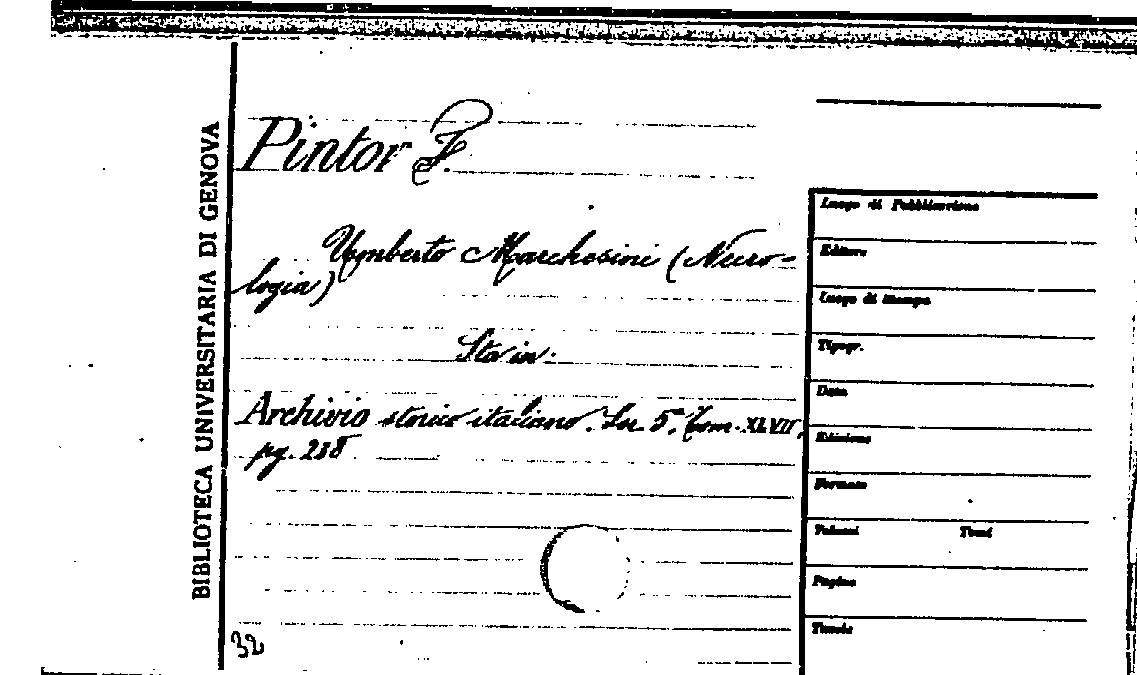 BIBLIOTECA UNIVERSITARIA DI GENOVA
Pintor F.
Umberto Marchesini (Necro-
logia)
Sta in:
Archivio storico italiano. Ser. 5ª, Tom. XLVII,
pg. 238
32
Luogo di Pubblicazione
Editore
Luogo di Stampa
Tipogr.
Data
Edizione
Formato
Volumi Tomi
Pagine
Tavole